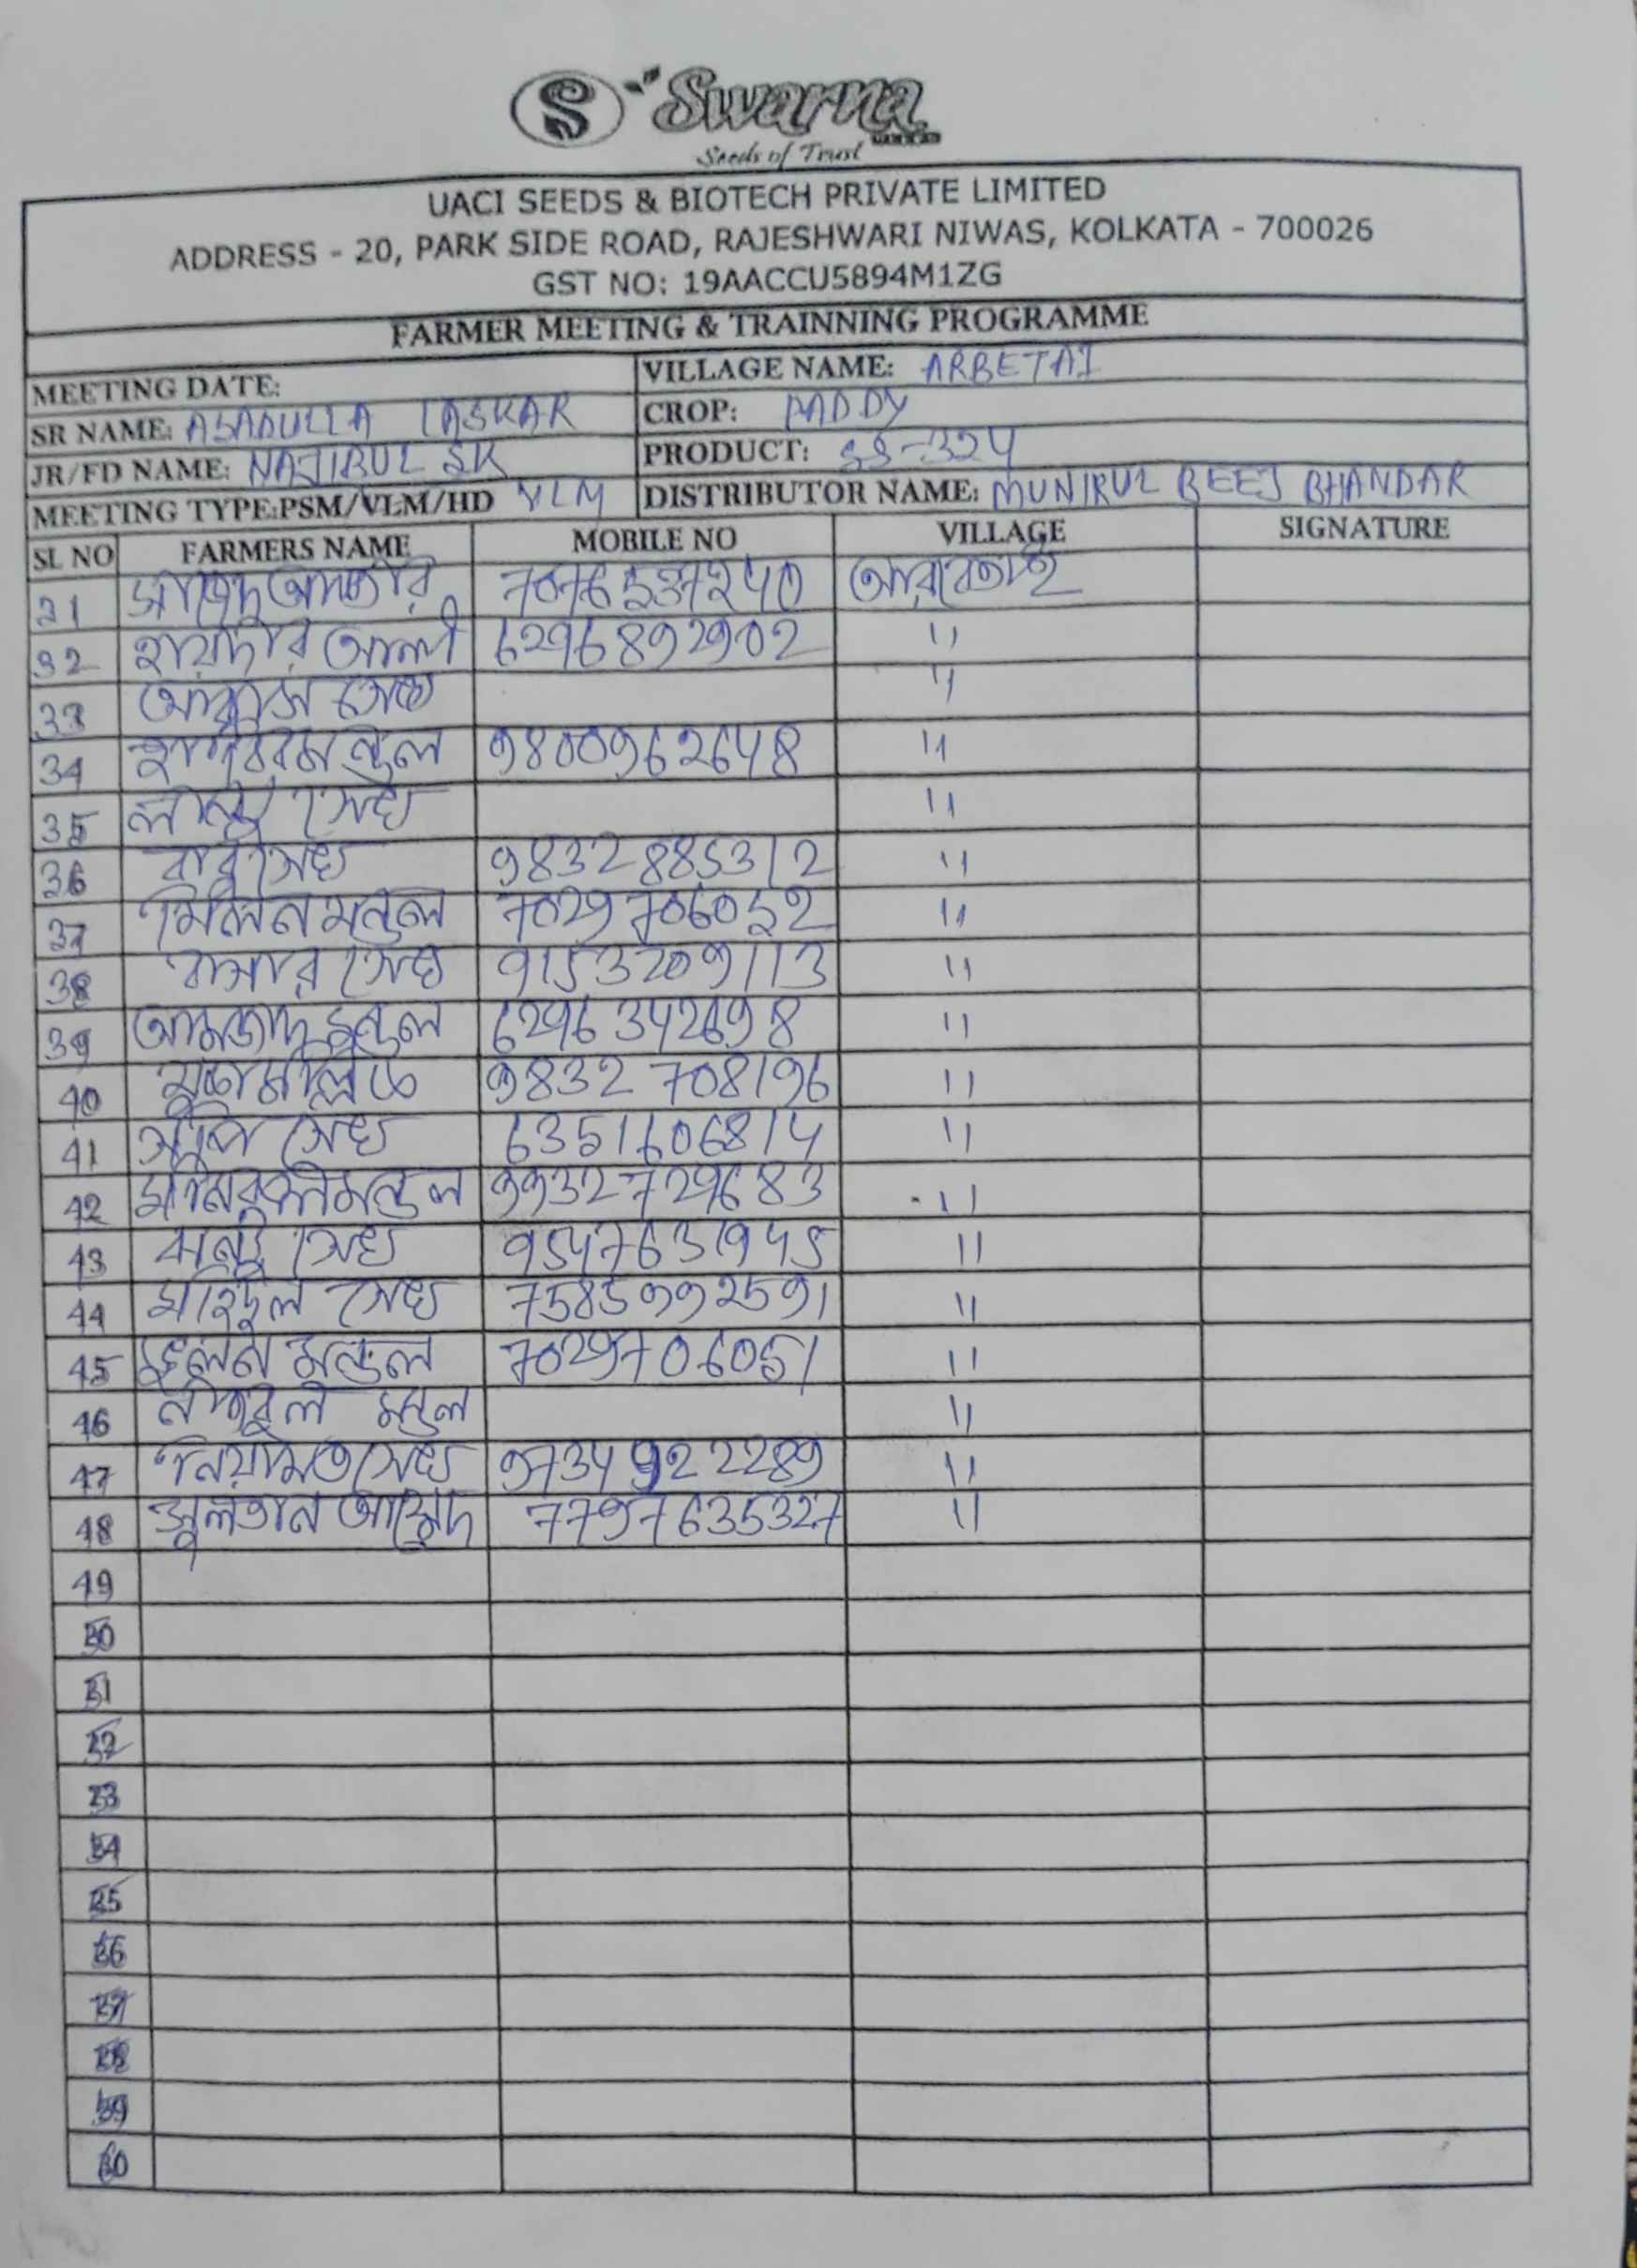 S Swarna
Seeds of Trust
UACI SEEDS & BIOTECH PRIVATE LIMITED
ADDRESS - 20, PARK SIDE ROAD, RAJESHWARI NIWAS, KOLKATA - 700026
GST NO: 19AACCU5894M1ZG
FARMER MEETING & TRAINNING PROGRAMME
MEETING DATE: VILLAGE NAME: ARBETAI
SR NAME: ASADULLA LASKAR CROP: PADDY
JR/FD NAME: NAJIRUL SK PRODUCT: SS-324
MEETING TYPE:PSM/VLM/HD VLM DISTRIBUTOR NAME: MUNIRUL BEEJ BHANDAR
SL NO FARMERS NAME MOBILE NO VILLAGE SIGNATURE
31 7076537240 আরবেতাই
32 হায়দার আলী 6296892902 "
33 সেখ "
34 মন্ডুল 9800962648 "
35 সেখ "
36 বাবু সেখ 9832885312 "
37 মিলন মন্ডুল 7029706052 "
38 সেখ 9153209113 "
39 আমজাদ মন্ডুল 6296342698 "
40 9832708196 "
41 সেখ 6351606814 "
42 মন্ডুল 9932729683 "
43 সেখ 9547631945 "
44 সেখ 7585992591 "
45 মন্ডুল 7029706051 "
46 মন্ডুল "
47 নিয়ামত সেখ 9734922289 "
48 সুলতান আহমেদ 7797635327 "
49
50
51
52
53
54
55
56
57
58
59
60